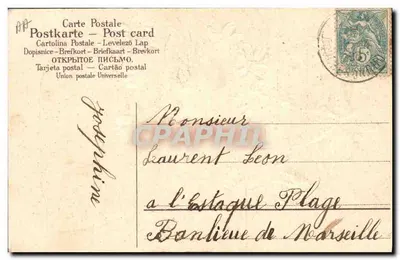 AA
Carte Postale
Postkarte — Post card
Cartolina Postale – Levelező Lap
Dopisnice – Brefkort – Briefkaart – Brevkort
ОТКРЫТОЕ ПИСЬМО.
Tarjeta postal — Cartão postal
Union postale Universelle
5
Joséphine
Monsieur
CPAPHIL
Laurent Léon
a l'Estaque Plage
Banlieue de Marseille